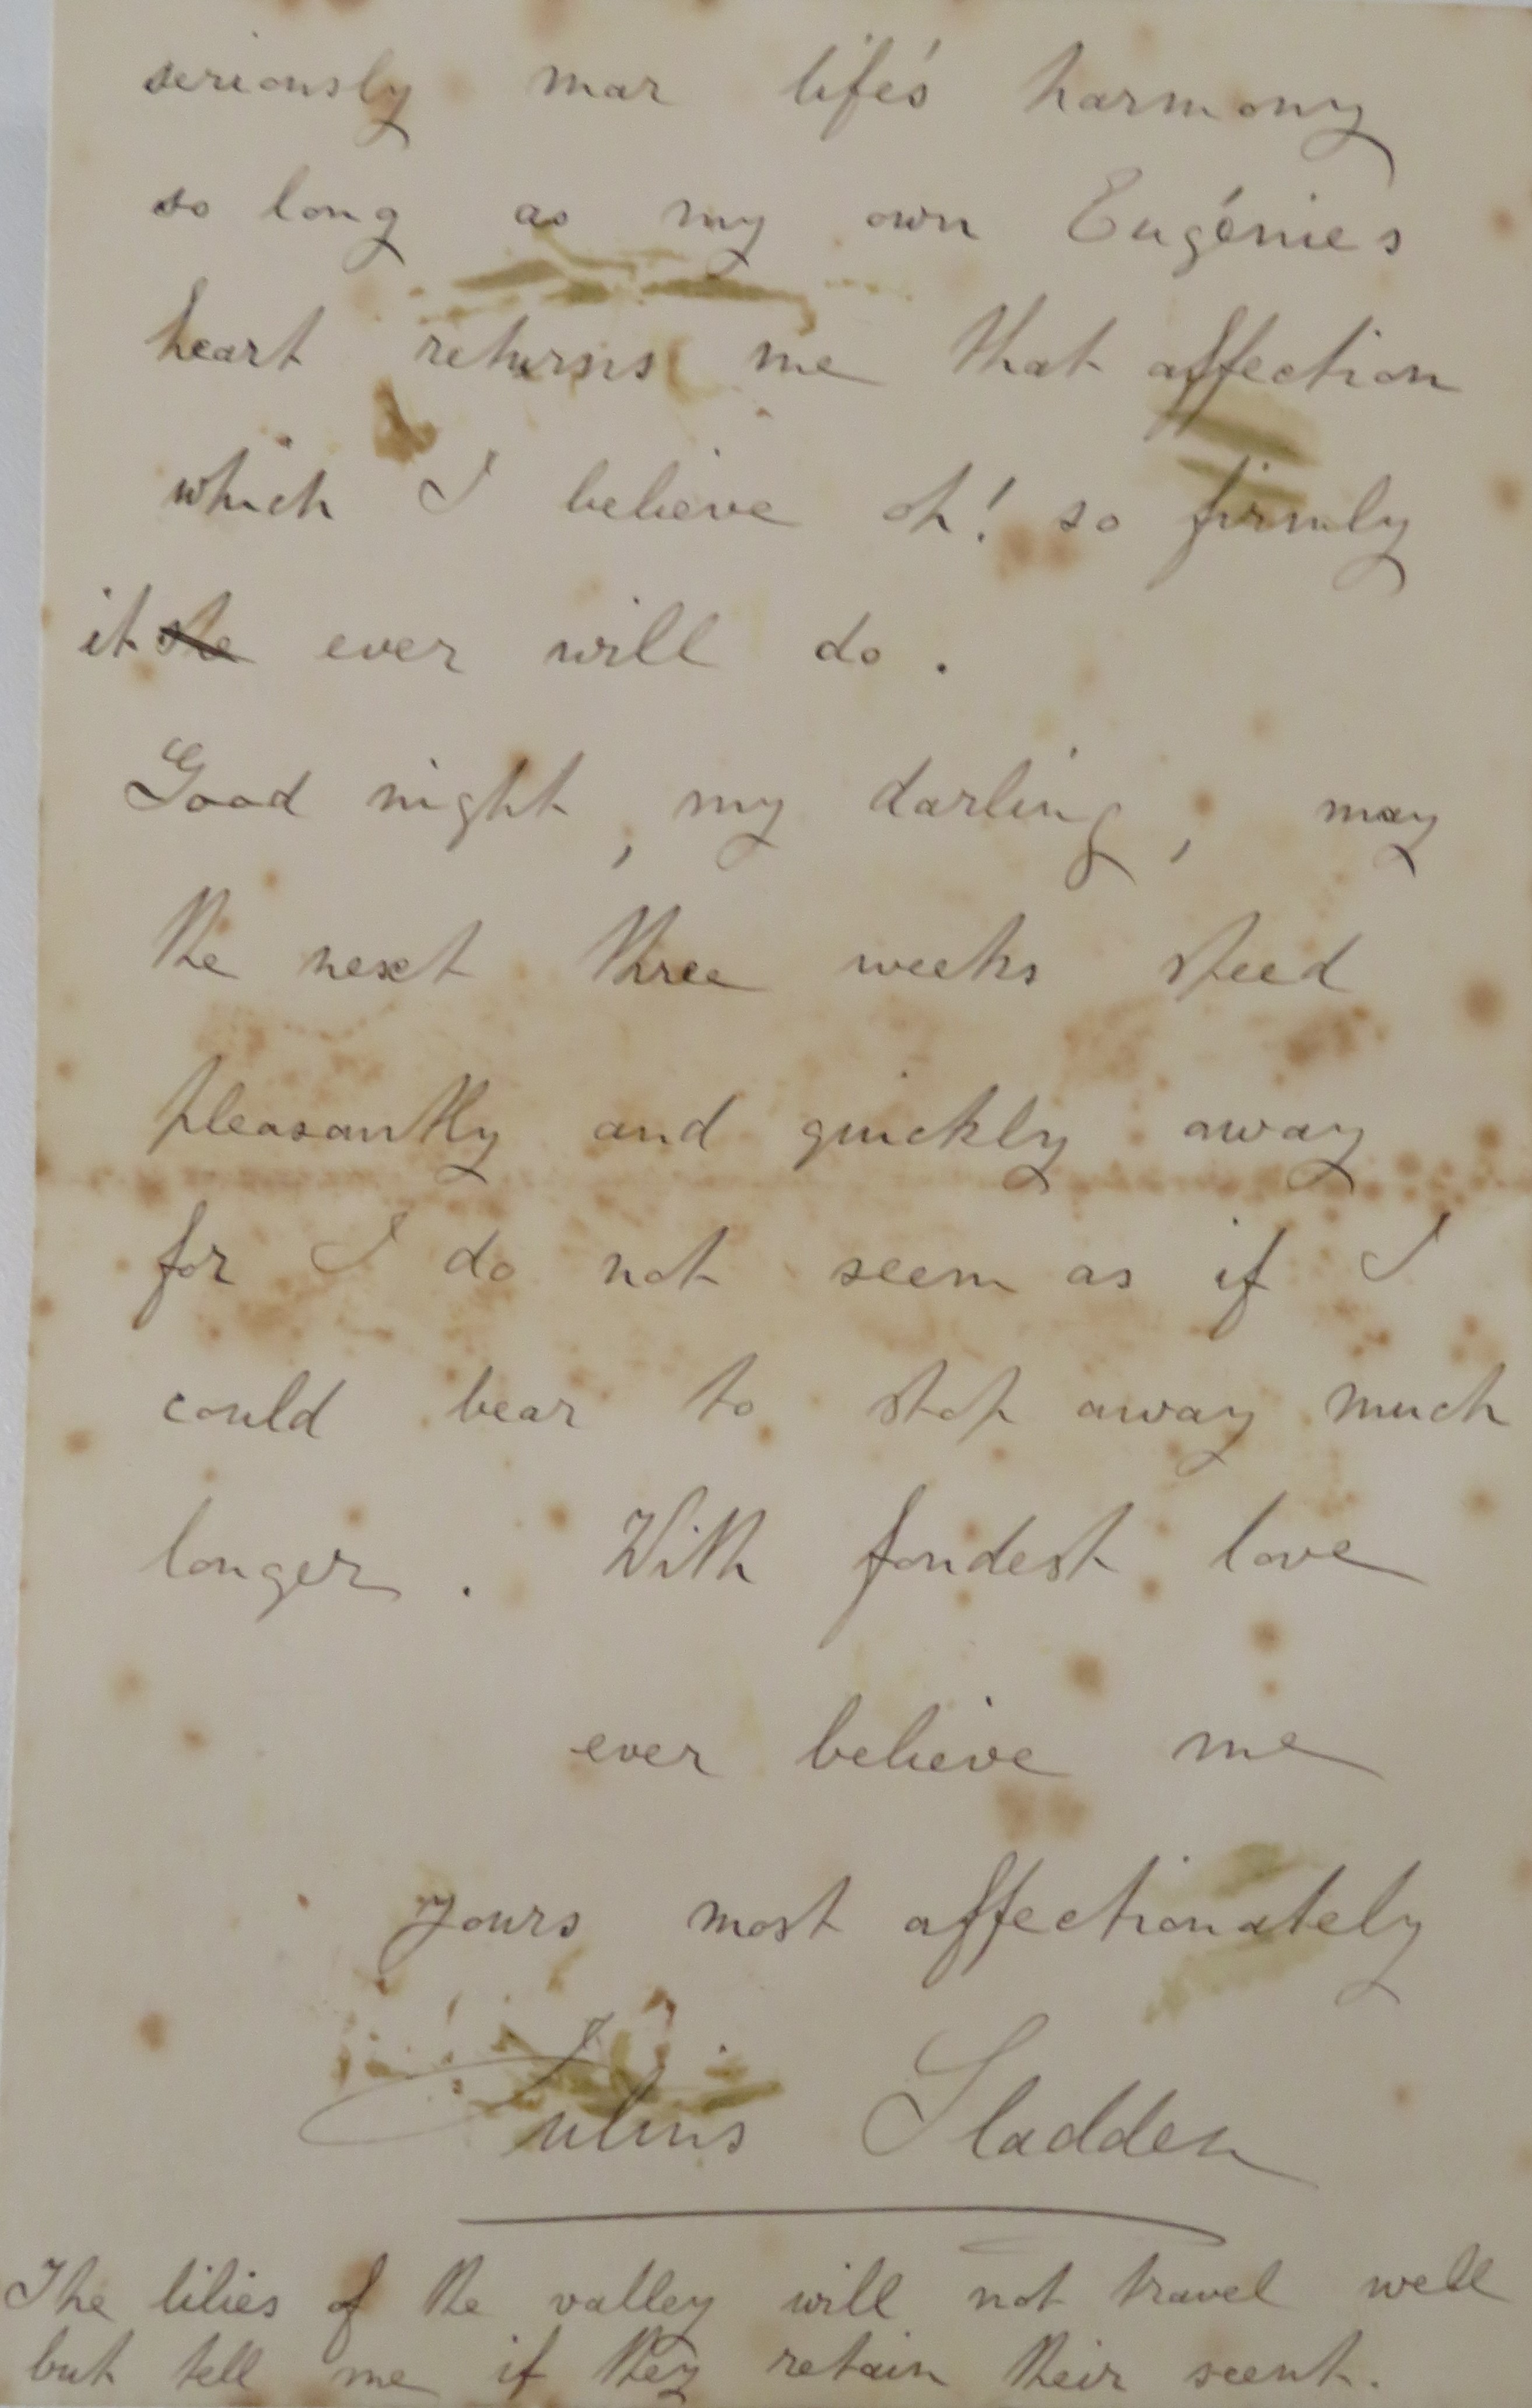 seriously mar life's harmony
so long as my own Eugénies
heart returns me that affection
which I believe oh! so firmly
it she ever will do.
Good night, my darling, may
the next three weeks steed
pleasantly and quickly away
for I do not seem as if I
could bear to stop away much
longer. With fondest love
ever believe me
yours most affectionately
Julius Sladden
The lilies of the valley will not travel well
but tell me if they retain their scent.